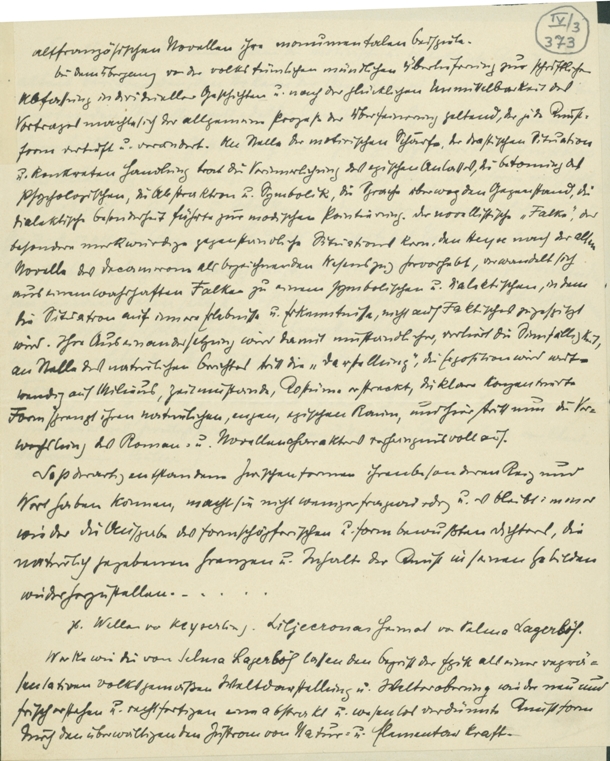 IV/3
373
altfranzösischen Novellen ihre monumentalen Beispiele.
Bei dem Übergang von der volkstümlichen mündlichen Überlieferung zur schriftlichen
Abfassung individueller Geschichten u. nach der glücklichen Unmittelbarkeit des
Vortrages machte sich der allgemeine Prozess der Verfeinerung geltend, der jede Kunst-
form vertieft u. verändert. An Stelle der motorischen Schärfe, der drastischen Situation
u. konkreten Handlung trat die Verinnerlichung des epischen Anlasses, die Betonung des
Psychologischen, die Abstraktion u. Symbolik, die Sprache überwog den Gegenstand, die
dialektische Besonderheit führte zur modischen Pointierung. Der novellistische „Falke", der
besondere merkwürdige gegenständliche Situationskern, den Heyse nach der alten
Novelle des Decamerone als bezeichnenden Wesenszug hervorhebt, verwandelt sich
aus einem wahrhaften Falken zu einem symbolischen u. dialektischen, indem
die Situation auf innere Erlebnisse u. Erkenntnisse, nicht auf Faktisches zugespitzt
wird. Ihre Auseinandersetzung wird damit umständlicher, verliert die Sinnfälligkeit,
an Stelle des natürlichen Berichtes tritt die „Darstellung", die Exposition wird
auf Milieus, Zeitumstände, Kostüme erstreckt, die klare konzentrierte
Form sprengt ihren natürlichen, engen, epischen Raum, und hier tritt nun die Ver-
wechslung des Roman- u. Novellencharakters verhängnisvoll auf.
Dass derartig entstandene Zwischenformen ihren besonderen Reiz und
Wert haben können, macht sie nicht weniger fragwürdig u. es bleibt immer
wieder die Aufgabe des formschöpferischen u. formbewußten Dichters, die
natürlich gegebenen Grenzen u. Inhalte der Kunst in seinen Gebilden
wiederherzustellen. - . . . . .
v. Keyserling. Liljecronas Heimat von Selma Lagerlöf.
Werke wie die von Selma Lagerlöf lassen den Begriff der Epik als einer reprä-
sentativen volksgemäßen Weltdarstellung u. Welteroberung wieder neu und
frisch erstehen u. rechtfertigen eine abstrakt u. wesenlos verdünnte Kunstform
durch den überwältigenden Zustrom von Natur- u. Elementarkraft.-